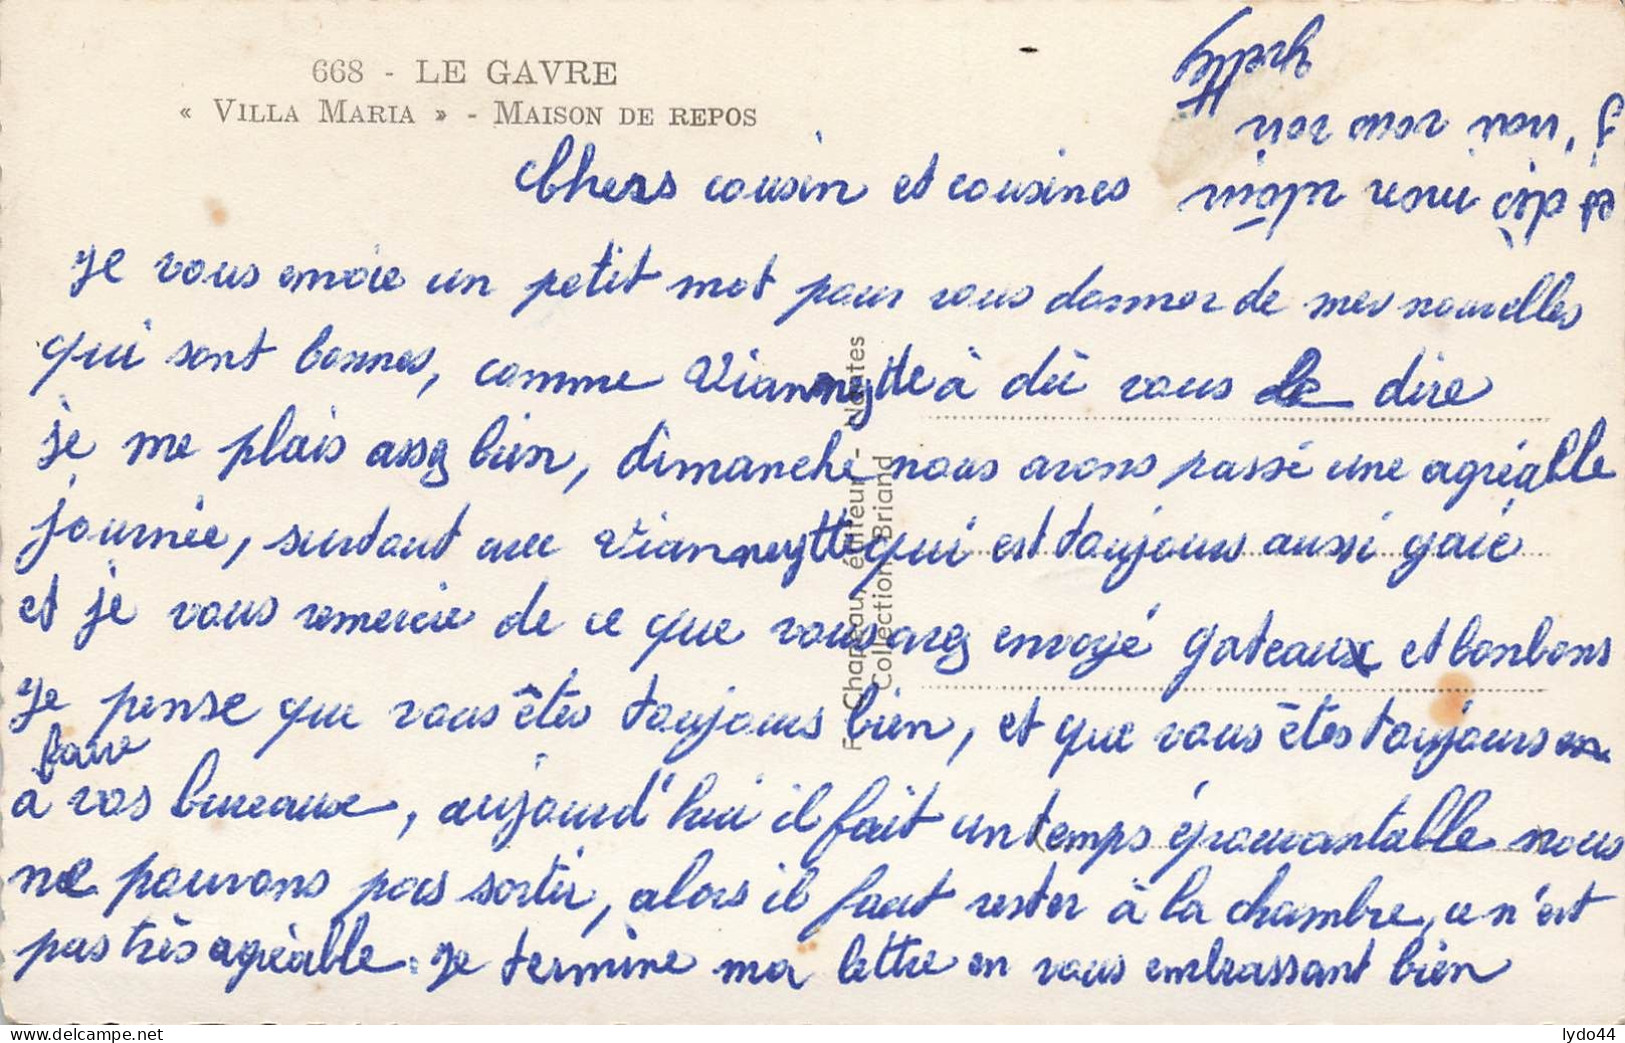 668 - LE GAVRE
« VILLA MARIA » - MAISON DE REPOS
Chers cousin et cousines
Je vous envoie un petit mot pour vous donner de mes nouvelles
qui sont bonnes, comme Vianneytte à dû vous le dire
je me plais assez bien, dimanche nous avons passé une agréable
journée, surtout avec Vianneytte qui est toujours aussi gaie
et je vous remercie de ce que vous avez envoyé gateaux et bonbons
Je pense que vous êtes toujours bien, et que vous êtes toujours
à vos bureaux, aujourd'hui il fait un temps épouvantable nous
ne pouvons pas sortir, alors il faut rester à la chambre, ce n'est
pas très agréable. Je termine ma lettre en vous embrassant bien
F. Chapeau, éditeur - Nantes
Collection Briand
lydo44